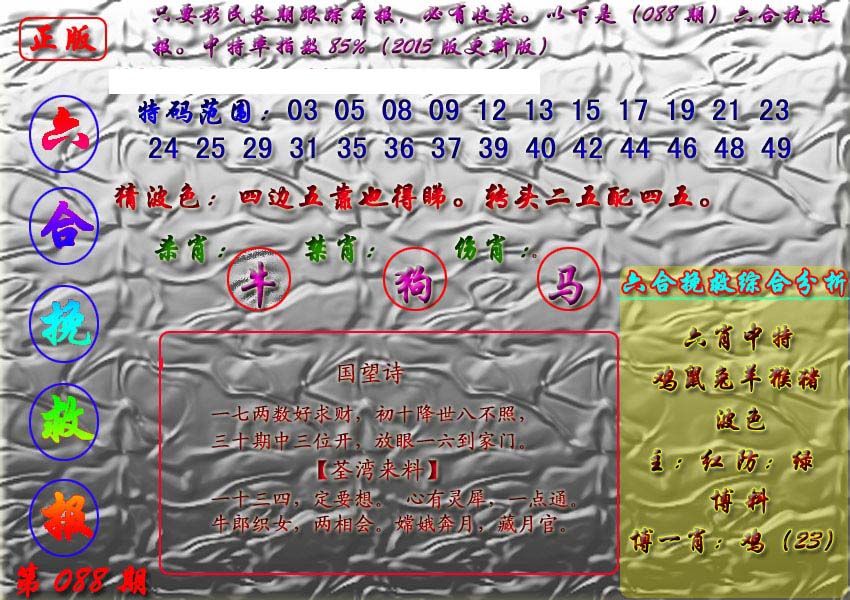 正版
只要彩民长期跟踪本报，必有收获。以下是（088期）六合挽救
报。中特率指数85%（2015版更新版）
六合挽救报
第088期
特码范围：03 05 08 09 12 13 15 17 19 21 23
24 25 29 31 35 36 37 39 40 42 44 46 48 49
猜波色：四边五靠也得睇。转头二五配四五。
杀肖：牛 禁肖：狗 伤肖：马
国望诗
一七两数好求财，初十降世八不照，
三十期中三位开，放眼一六到家门。
【荃湾来料】
一十三四，定要想。 心有灵犀，一点通。
牛郎织女，两相会。嫦娥奔月，藏月宫。
六合挽救综合分析
六肖中特
鸡鼠兔羊猴猪
波色
主：红防：绿
博料
博一肖：鸡（23）